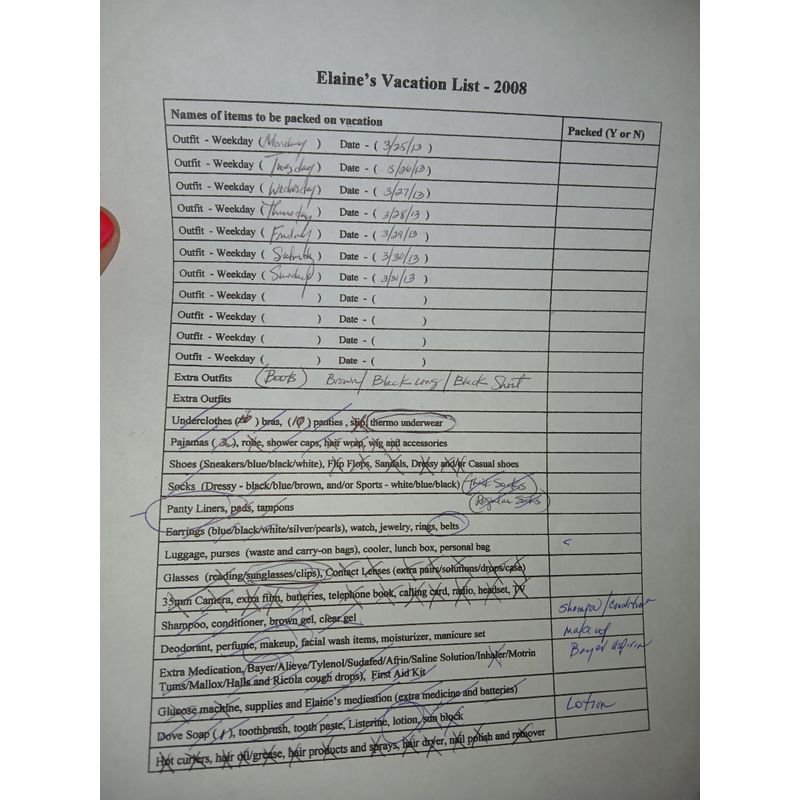 Elaine's Vacation List - 2008
Names of items to be packed on vacation Packed (Y or N)
Outfit - Weekday (Monday) Date - (3/25/13)
Outfit - Weekday (Tuesday) Date - (3/26/13)
Outfit - Weekday (Wednesday) Date - (3/27/13)
Outfit - Weekday (Thursday) Date - (3/28/13)
Outfit - Weekday (Friday) Date - (3/29/13)
Outfit - Weekday (Saturday) Date - (3/30/13)
Outfit - Weekday (Sunday) Date - (3/31/13)
Outfit - Weekday ( ) Date - ( )
Outfit - Weekday ( ) Date - ( )
Outfit - Weekday ( ) Date - ( )
Outfit - Weekday ( ) Date - ( )
Extra Outfits (Boots) Brown/ Black Long/ Black Short
Extra Outfits
Underclothes ( ) bras, (10) panties, slip, thermo underwear
Pajamas ( ), robe, shower caps, hair wrap, wig and accessories
Shoes (Sneakers/blue/black/white), Flip Flops, Sandals, Dressy and/or Casual shoes
Socks (Dressy - black/blue/brown, and/or Sports - white/blue/black) Thick Socks
Panty Liners, pads, tampons Regular Socks
Earrings (blue/black/white/silver/pearls), watch, jewelry, rings, belts
Luggage, purses (waste and carry-on bags), cooler, lunch box, personal bag
Glasses (reading/sunglasses/clips), Contact Lenses (extra pairs/solutions/drops/case)
35mm Camera, extra film, batteries, telephone book, calling card, radio, headset, TV
Shampoo, conditioner, brown gel, clear gel Shampoo/condition
Deodorant, perfume, makeup, facial wash items, moisturizer, manicure set Makeup
Extra Medication, Bayer/Alieve/Tylenol/Sudafed/Afrin/Saline Solution/Inhaler/Motrin Bayer aspirin
Tums/Mallox/Halls and Ricola cough drops), First Aid Kit
Glucose machine, supplies and Elaine's medication (extra medicine and batteries)
Dove Soap ( ), toothbrush, tooth paste, Listerine, lotion, sun block Lotion
Hot curlers, hair oil/grease, hair products and sprays, hair dryer, nail polish and remover